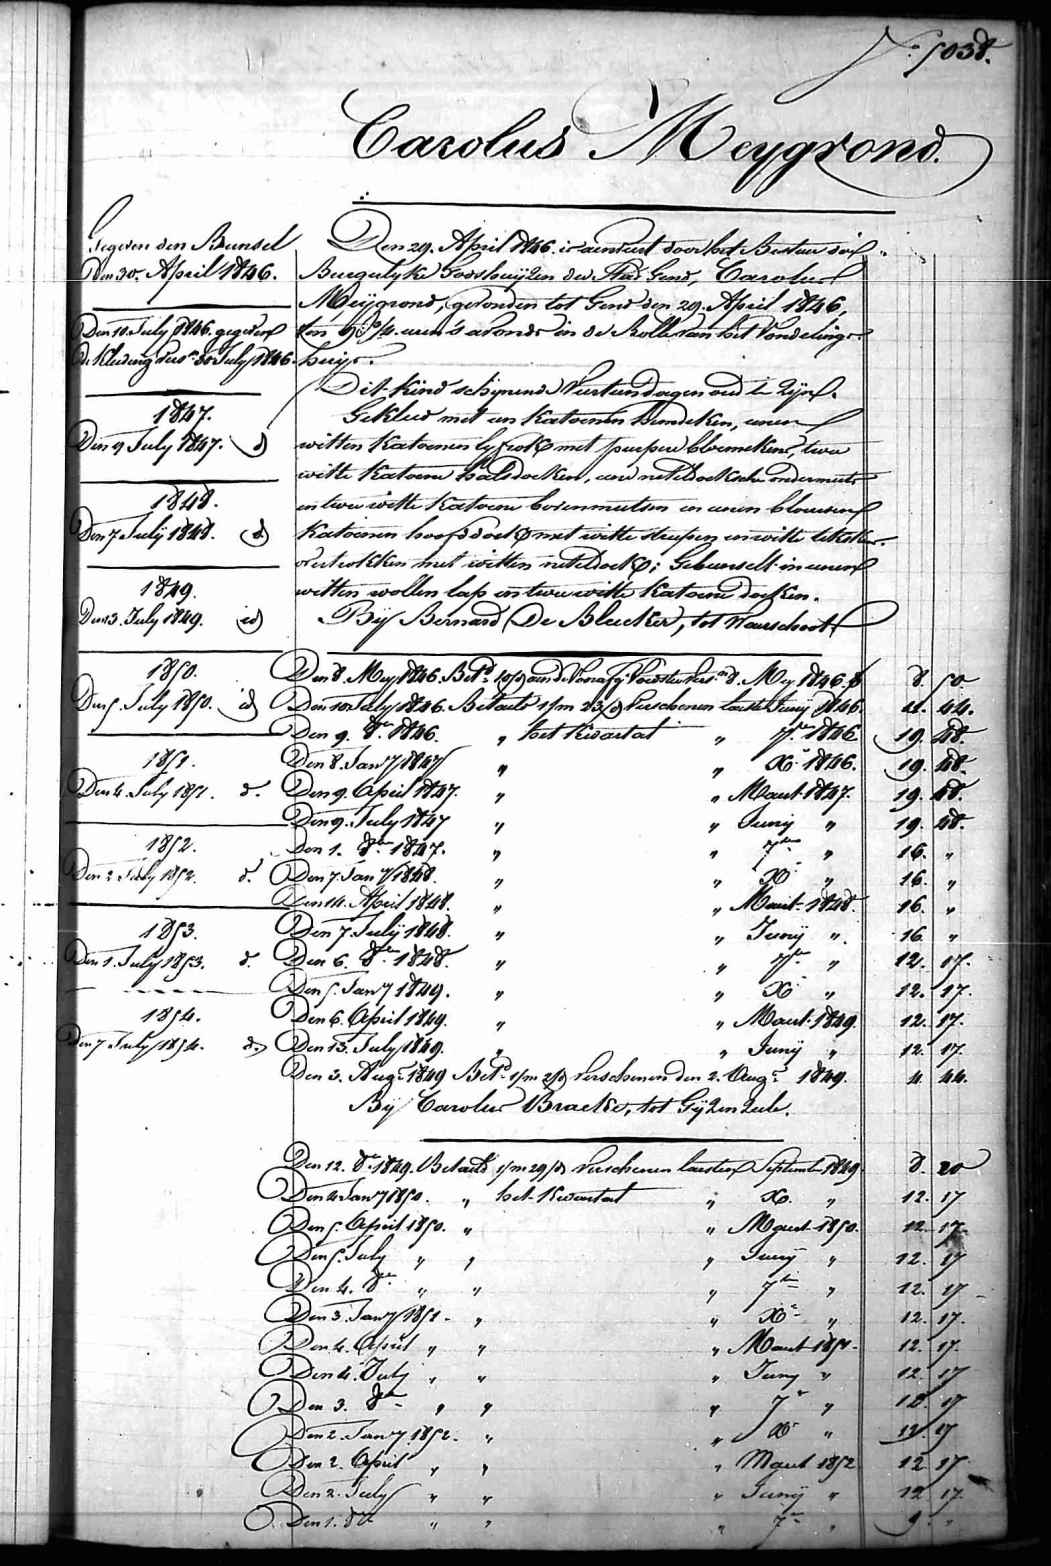 N.o 5038.
Carolus Meygrond.
Gegeven den Bunsel
Den 30. April 1846.
Den 10. July 1846. gegeven
de Kleeding 30 July 1846.
1847.
Den 9 July 1847. id
1848.
Den 7 Julij 1848. id
1849.
Den 3. July 1849. id
1850.
Den 5. July 1850. id
1851.
Den 4. July 1851. d.
1852.
Den 2 July 1852. d.
1853.
Den 1. July 1853. d.
1854.
Den 7 July 1854. d.
Den 29. April 1846. is aenveert door het Bestuer der
Burgerlyke Godshuyzen der Stad Gend, Carolus
Meijgrond, gevonden tot Gend den 29. April 1846,
ten 9 uren 's avonds in de Rolle van het Vondelings-
huijs.
Dit kind schynende Veertien dagen oud te zijn.
Gekleed met een katoenen hemdeken, eenen
witten katoenen lyfrok met purpere bloemekens, twee
witte katoene halsdoeken, eene neteldoeksche ondermuts
en twee witte katoene bovenmutsen en eenen blauwen
katoenen hoofddoek met witte streepen en witte
overtrokken met witten neteldoek; Gebunselt in eenen
witten wollen lap en twee witte katoene doeken.
Bij Bernard De Blecker, tot Waerschoot
Den 8. Mey 1846. Bet.d 8. Mey 1846. 8. 50
Den 10 July 1846. Betaeld 1/m 23/d Verschenen laesten Juny 1846. 11. 44.
Den 9. 8.bre 1846. " het Kwartael " 7.bre 1846. 19. 48.
Den 8. Jan.y 1847 " " X.r 1846. 19. 48.
Den 9. April 1847. " " Maert 1847. 19. 48.
Den 9. July 1847 " " Junij " 19. 48.
Den 1. 8.bre 1847. " " 7.bre " 16. "
Den 7 Jan.y 1848. " " X.r " 16. "
Den 14. April 1848. " " Maert 1848. 16. "
Den 7 Julij 1848. " " Junij " 16. "
Den 6. 8.bre 1848. " " 7.bre " 12. 17.
Den 5. Jan.y 1849. " " X.r " 12. 17.
Den 6. April 1849. " " Maert 1849. 12. 17.
Den 13. July 1849. " " Junij " 12. 17.
Den 3. Aug.t 1849 Bet.d 1/m 2/d Verschenen den 2. Aug.t 1849. 4. 44.
Bij Carolus Bracke, tot Gijzenzele.
Den 12. 8.r 1849. Betaeld 1/m 29/d Verschenen laesten September 1849. 8. 20
Den 4 Jan.y 1850. " het Kwartael " X.r " 12. 17
Den 5. April 1850. " " Maert 1850. 12. 17.
Den 5. July " " " Junij " 12. 17
Den 4. 8.bre " " " 7.bre " 12. 17
Den 3. Jan.y 1851. " " X.r " 12. 17.
Den 4. April " " " Maert 1851. 12. 17.
Den 4. July " " " Juny " 12. 17
Den 3. 8.bre " " " 7.r " 12. 17
Den 2. Jan.y 1852. " " X.r " 12. 17
Den 2. April " " " Maert 1852 12 17
Den 2. July " " " Junij " 12 17.
Den 1. 8.bre " " " 7.bre " 9. "